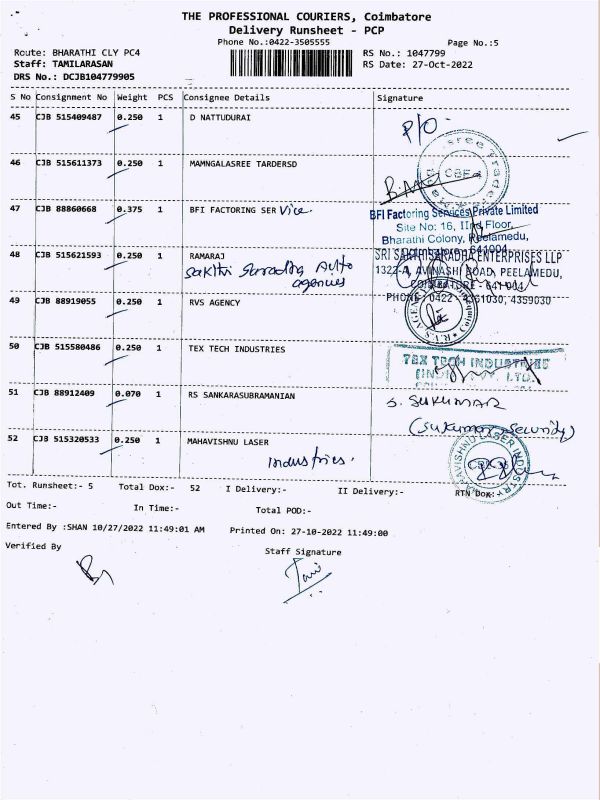 THE PROFESSIONAL COURIERS, Coimbatore
Delivery Runsheet - PCP
Phone No.:0422-3505555
Page No.:5
Route: BHARATHI CLY PC4
RS No.: 1047799
Staff: TAMILARASAN
RS Date: 27-Oct-2022
DRS No.: DCJB104779905
S No Consignment No Weight PCS Consignee Details Signature
45 CJB 515409487 0.250 1 D NATTUDURAI
P/O
46 CJB 515611373 0.250 1 MAMNGALASREE TARDERSD
CBE-4
47 CJB 88860668 0.375 1 BFI FACTORING SER Vice.
BFI Factoring Services Private Limited
Site No: 16, IInd Floor,
Bharathi Colony, Peelamedu,
641004
48 CJB 515621593 0.250 1 RAMARAJ
Sakthi Saradha Auto
agencies
SRI SAKTHISARADHA ENTERPRISES LLP
1322-A, AVINASHI ROAD, PEELAMEDU,
COIMBATORE - 641 004
PHONE: 0422 - 4361030, 4359030
49 CJB 88919055 0.250 1 RVS AGENCY
50 CJB 515580486 0.250 1 TEX TECH INDUSTRIES
TEX TECH INDUSTRIES
LTD.
51 CJB 88912409 0.070 1 RS SANKARASUBRAMANIAN
S. SUKUMAR
(Sukumar Security)
52 CJB 515320533 0.250 1 MAHAVISHNU LASER
industries.
MAHAVISHNU LASER INDUSTRY
Tot. Runsheet:- 5 Total Dox:- 52 I Delivery:- II Delivery:- RTN Dox:-
Out Time:- In Time:- Total POD:-
Entered By :SHAN 10/27/2022 11:49:01 AM Printed On: 27-10-2022 11:49:00
Verified By
Staff Signature